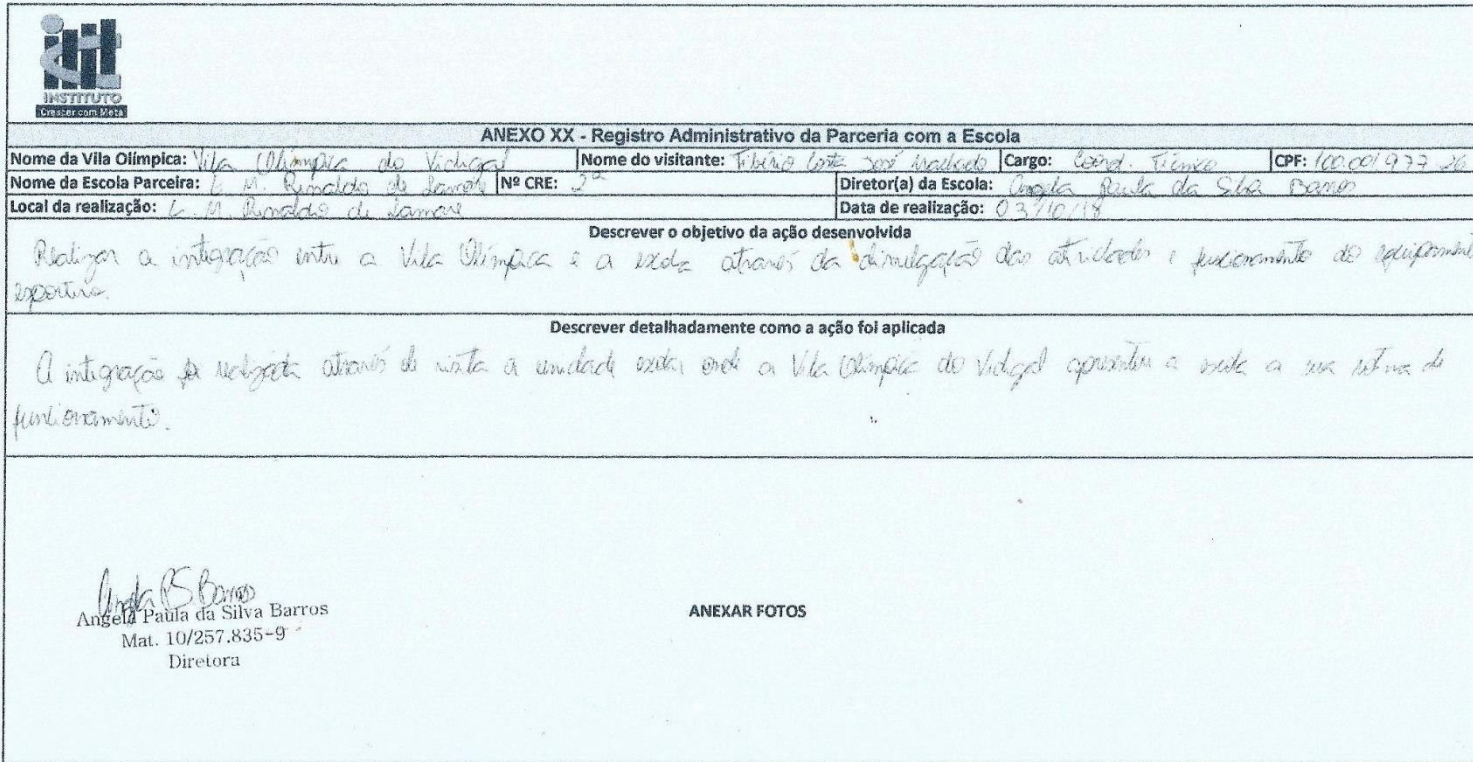 INSTITUTO
Crescer com Meta
ANEXO XX - Registro Administrativo da Parceria com a Escola
Nome da Vila Olímpica: Vila Olímpica do Vidigal Nome do visitante: José Machado Cargo: Coord. Técnico CPF:
Nome da Escola Parceira: E. M. Rinaldo de Lamare Nº CRE: 2ª Diretor(a) da Escola: Angela Paula da Silva Barros
Local da realização: E. M. Rinaldo de Lamare Data de realização: 03/10/18
Descrever o objetivo da ação desenvolvida
Realizar a integração entre a Vila Olímpica e a escola através da divulgação das atividades e funcionamento do equipamento
esportivo.
Descrever detalhadamente como a ação foi aplicada
A integração foi realizada através de visita a unidade escolar onde a Vila Olímpica do Vidigal apresentou a escola a sua rotina de
funcionamento.
Angela PS Barros
Angela Paula da Silva Barros
Mat. 10/257.835-9
Diretora
ANEXAR FOTOS